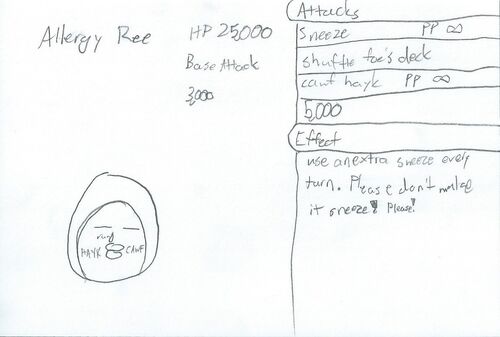 Allergy Ree
HP 25,000
Base Attack
3,000
Attacks
Sneeze PP ∞
shuffle foe's deck
cawf hayk PP ∞
5,000
Effect
use an extra sneeze every
turn. Please don't make
it sneeze! Please!
HAYK CAWF